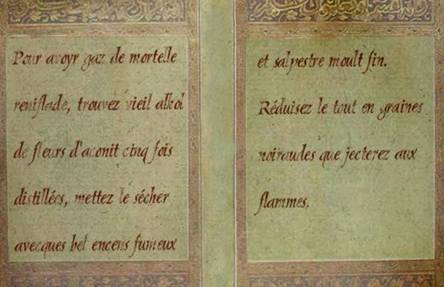 Pour avoyr gaz de mortelle
reniflade, trouvez vieil alkol
de fleurs d'aconit cinq fois
distillées, mettez le sécher
avecques bel encens fumeux
et salpestre moult fin.
Réduisez le tout en graines
noiraudes que jecterez aux
flammes.